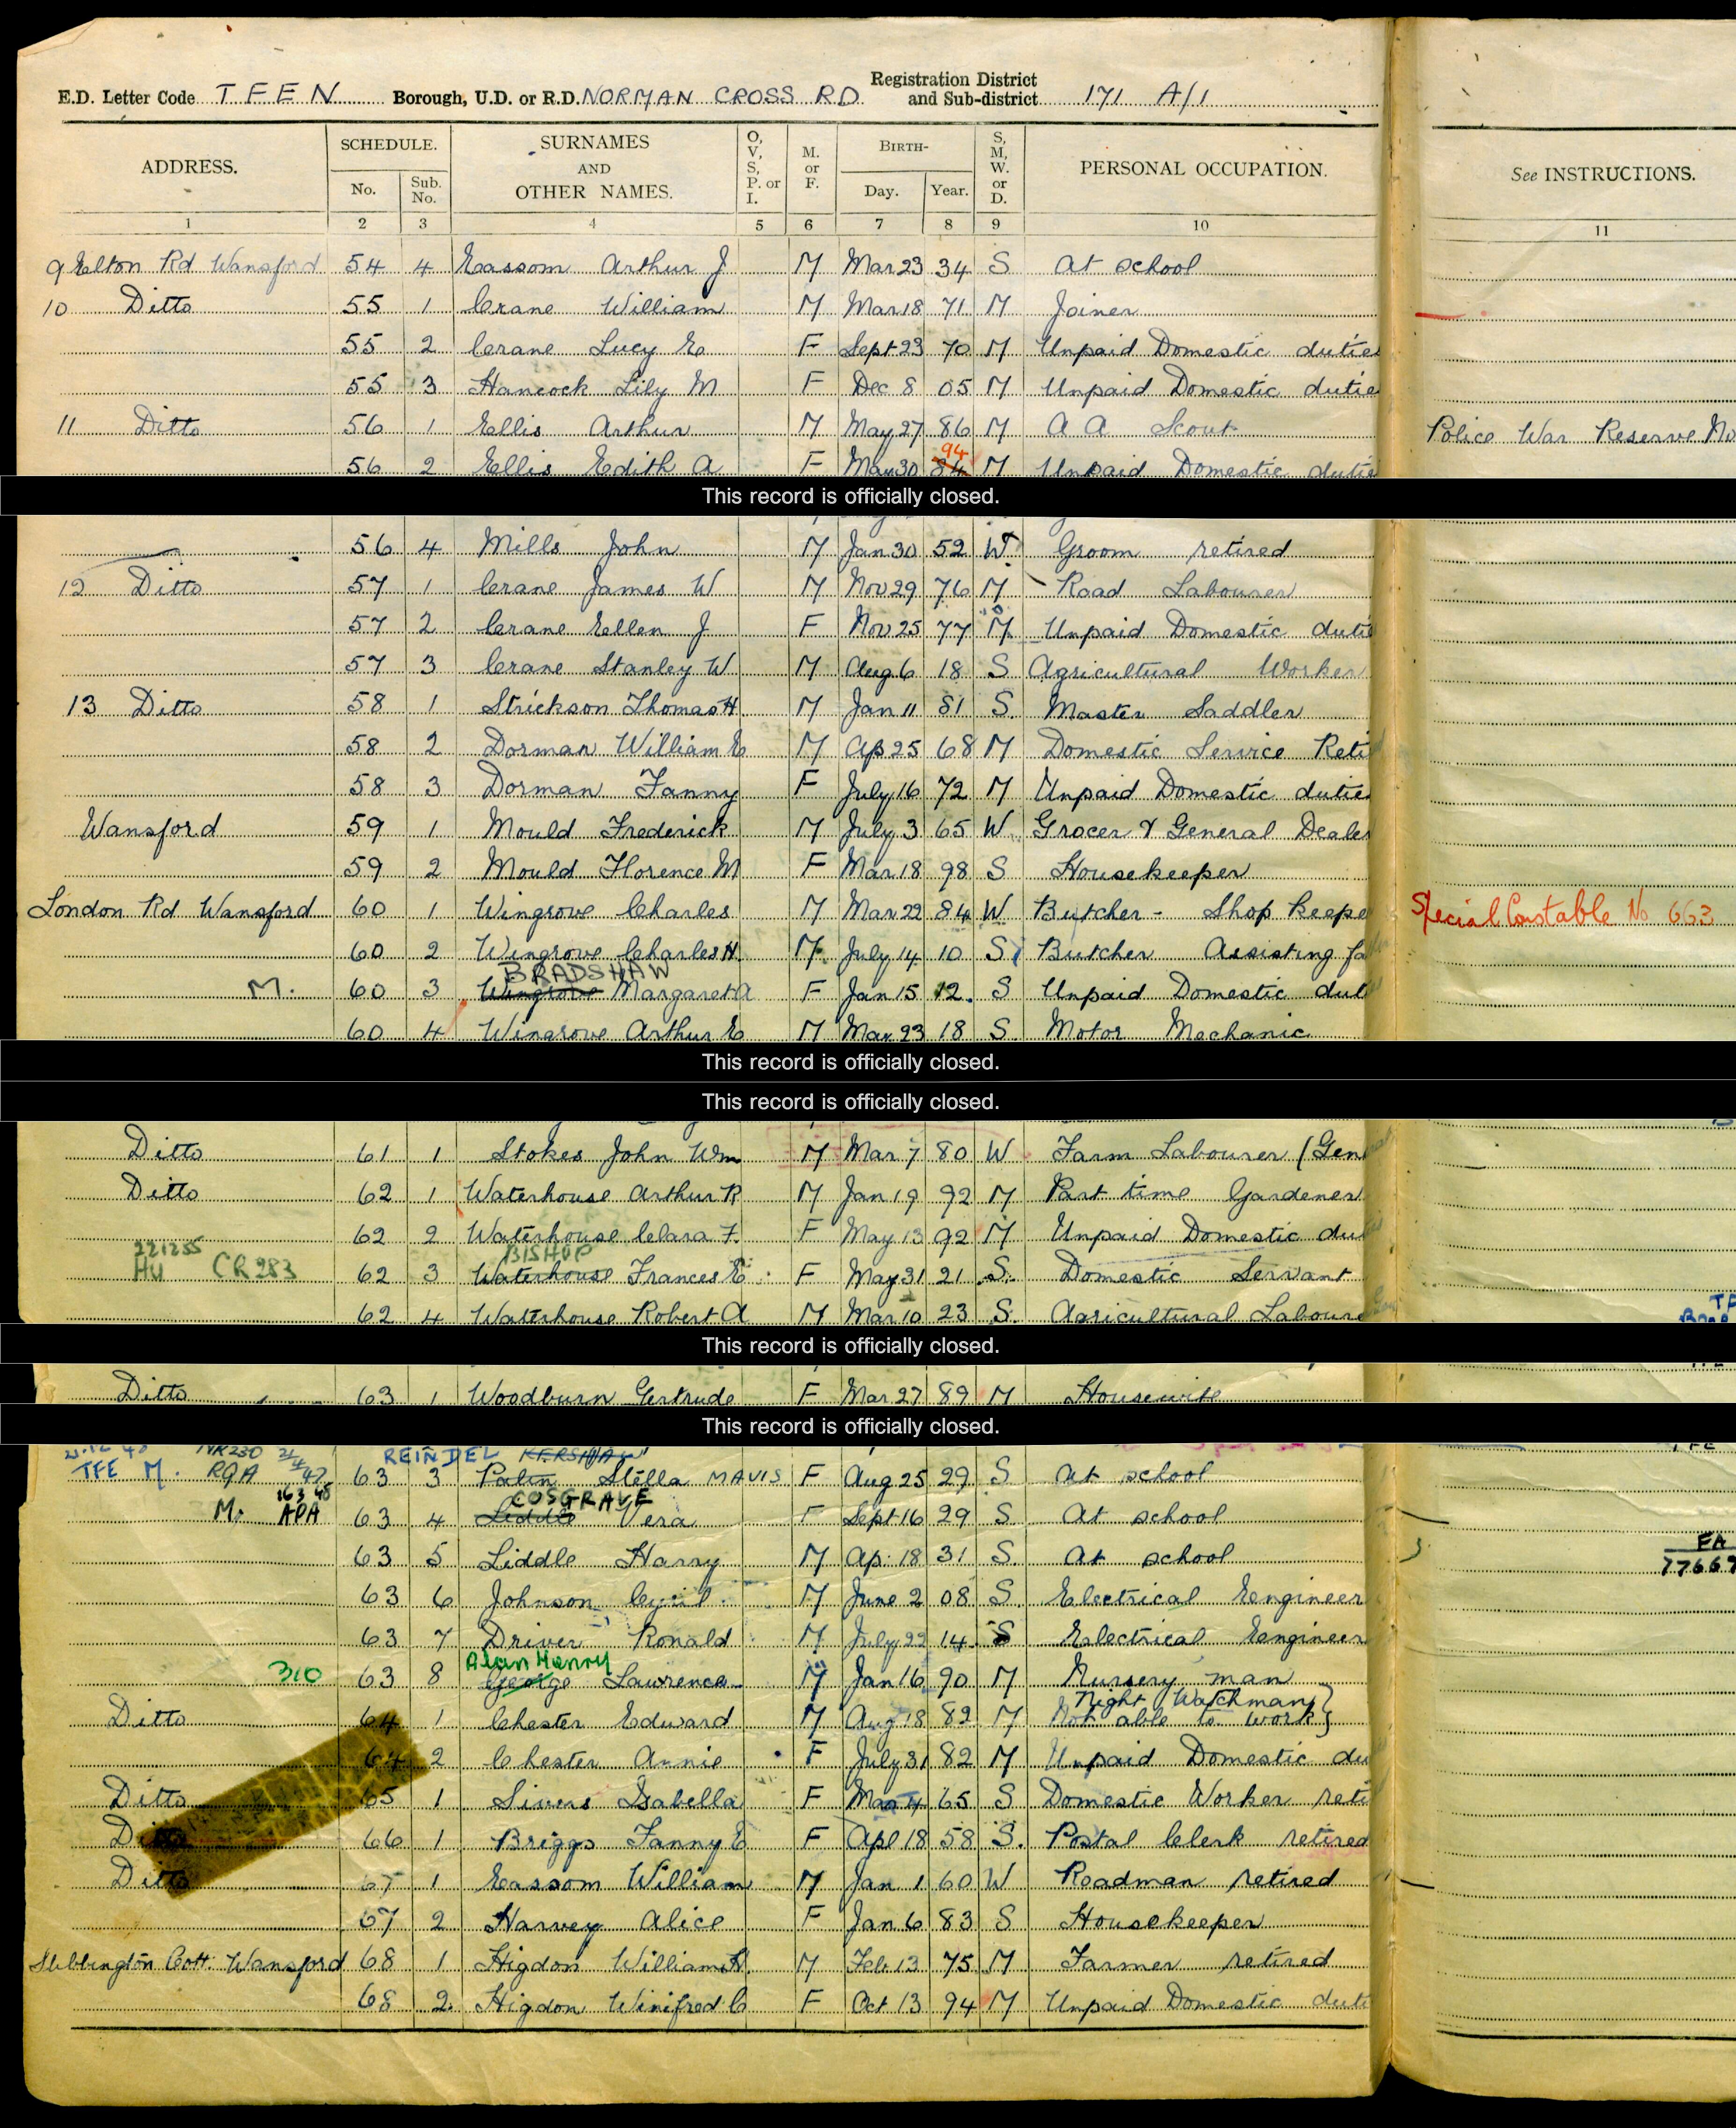 Registration District
E.D. Letter Code TFEN Borough, U.D. or R.D. NORMAN CROSS RD and Sub-district 171 A/1
ADDRESS. SCHEDULE. No. Sub. No. SURNAMES AND OTHER NAMES. O, V, S, P. or I. M. or F. BIRTH- Day. Year. S, M, W. or D. PERSONAL OCCUPATION. See INSTRUCTIONS.
1 2 3 4 5 6 7 8 9 10 11
9 Elton Rd Wansford 54 4 Eassom Arthur J M Mar 23 34 S At school
10 Ditto 55 1 Crane William M Mar 18 71 M Joiner
55 2 Crane Lucy E F Sept 23 70 M Unpaid Domestic duties
55 3 Hancock Lily M F Dec 8 05 M Unpaid Domestic dutie
11 Ditto 56 1 Ellis Arthur M May 27 86 M A A Scout Police War Reserve No
94
56 2 Ellis Edith A F May 30 84 M Unpaid Domestic dutie
This record is officially closed.
56 4 Mills John M Jan 30 52 W Groom retired
12 Ditto 57 1 Crane James W M Nov 29 76 M Road Labourer
57 2 Crane Ellen J F Nov 25 77 M Unpaid Domestic dutie
57 3 Crane Stanley W M Aug 6 18 S Agricultural Worker
13 Ditto 58 1 Strickson Thomas H M Jan 11 81 S. Master Saddler
58 2 Dorman William E M Ap 25 68 M Domestic Service Reti
58 3 Dorman Fanny F July 16 72 M Unpaid Domestic duties
Wansford 59 1 Mould Frederick M July 3 65 W Grocer & General Dealer
59 2 Mould Florence M F Mar 18 98 S Housekeeper
London Rd Wansford 60 1 Wingrove Charles M Mar 22 84 W Butcher - Shop keepe Special Constable No 663
60 2 Wingrove Charles H M July 14 10 S Butcher Assisting fa
BRADSHAW
M. 60 3 Wingrove Margaret A F Jan 15 12. S Unpaid Domestic dut
60 4 Wingrove Arthur E M Mar 23 18 S. Motor Mechanic
This record is officially closed.
This record is officially closed.
Ditto 61 1 Stokes John Wm M Mar 7 80 W Farm Labourer (Gen
Ditto 62 1 Waterhouse Arthur R M Jan 19 92 M Part time Gardener
62 2 Waterhouse Clara F. F May 13 92 M Unpaid Domestic dut
221255 BISHOP
HU CR 283 62 3 Waterhouse Frances E F May 31 21 S. Domestic Servant
62 4 Waterhouse Robert A M Mar 10 23 S. Agricultural Laboure
This record is officially closed.
Ditto 63 1 Woodburn Gertrude F Mar 27 89 M Housewife
This record is officially closed.
NR230 REINDEL KERSHAW
TFE M. RQA 63 3 Palin Stella MAVIS F Aug 25 29 S At school
COSGRAVE
M. APA 63 4 Liddle Vera F Sept 16 29 S At school
63 5 Liddle Harry M Ap. 18 31 S. At school
77667
63 6 Johnson Cyril M June 2 08 S. Electrical Engineer
63 7 Driver Ronald M July 22 14. S Electrical Engineer
Alan Henry
310 63 8 George Lawrence M Jan 16 90 M Nursery man
Night Watchman
Ditto 64 1 Chester Edward M Aug 18 82 M Not able to work
64 2 Chester Annie F July 31 82 M Unpaid Domestic du
Ditto 65 1 Sivers Isabella F Mar 4 65 S Domestic Worker reti
Ditto 66 1 Briggs Fanny E F Apl 18 58 S. Postal Clerk retired
Ditto 67 1 Eassom William M Jan 1 60 W Roadman retired
67 2 Harvey Alice F Jan 6 83 S Housekeeper
Stibbington Cott. Wansford 68 1 Higdon William H. M Feb 13 75 M Farmer retired
68 2. Higdon Winifred C F Oct 13 94 M Unpaid Domestic duti